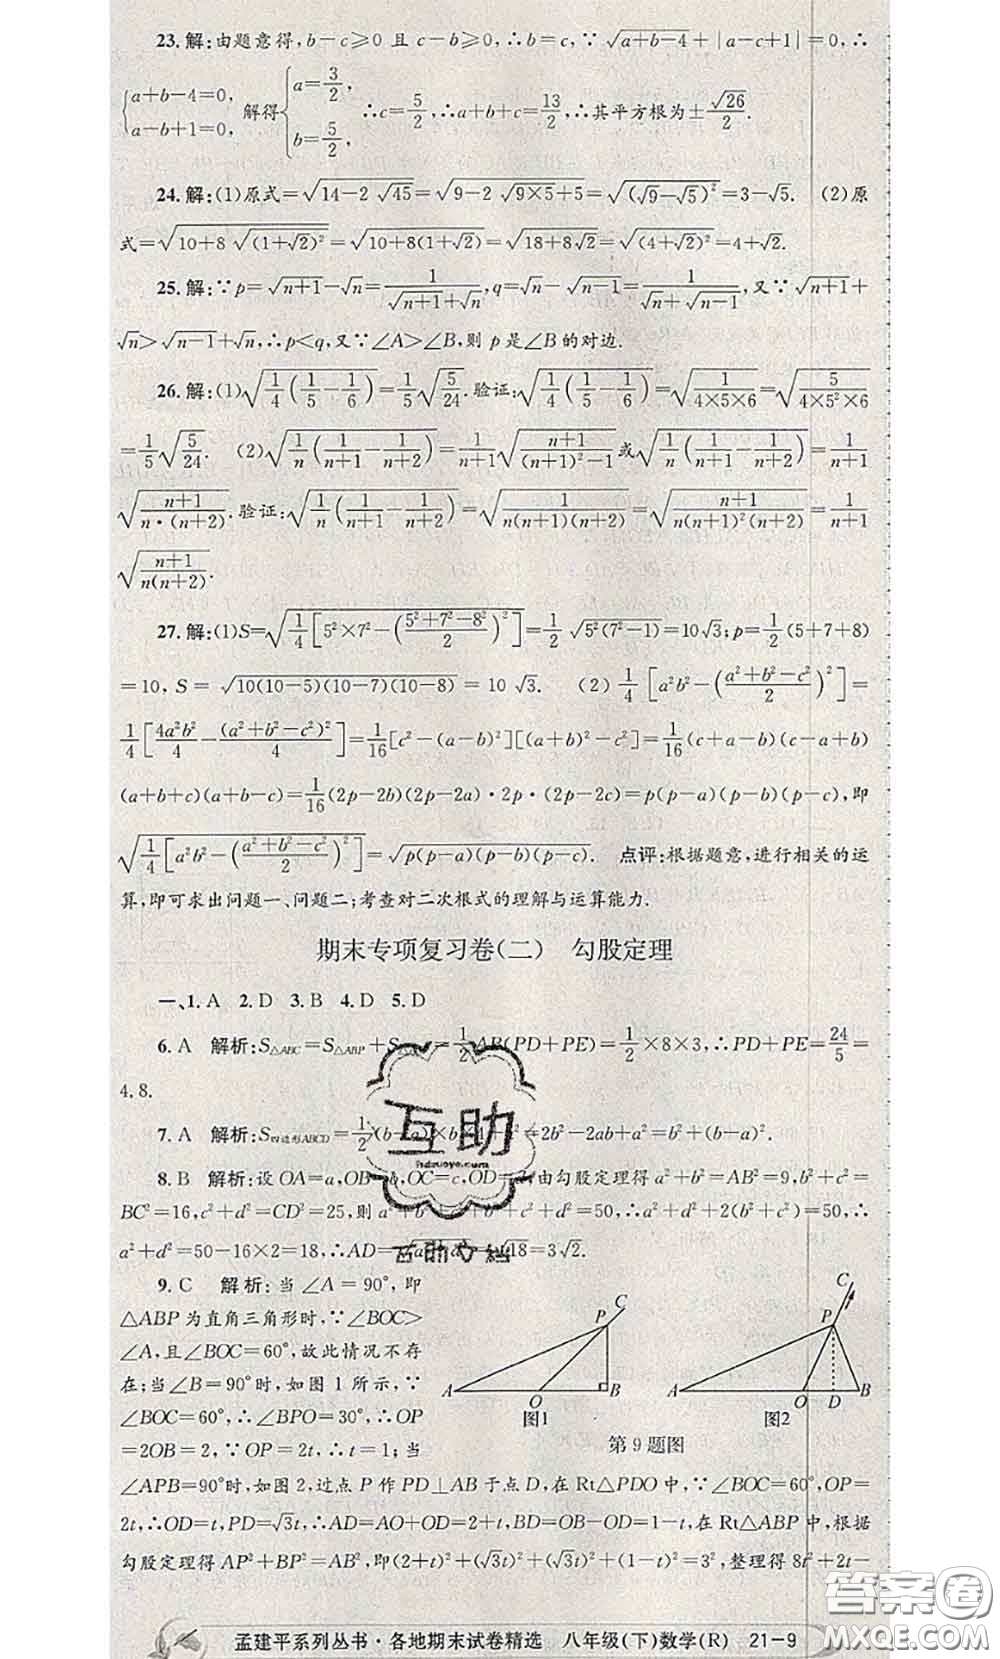 23.解:由题意得,b-c≥0 且 c-b≥0,∴b=c,∵√(a+b-4)+|a-c+1|=0,∴
{a+b-4=0, a-b+1=0, 解得{a=3/2, b=5/2, ∴c=5/2,∴a+b+c=13/2,∴其平方根为±√26/2.
24.解:(1)原式=√(14-2√45)=√(9-2√(9×5)+5)=√((√9-√5)²)=3-√5. (2)原
式=√(10+8√((1+√2)²))=√(10+8(1+√2))=√(18+8√2)=√((4+√2)²)=4+√2.
25.解:∵p=√(n+1)-√n=1/(√(n+1)+√n),q=√n-√(n-1)=1/(√n+√(n-1)),又∵√(n+1)+
√n>√(n-1)+√n,∴p<q,又∵∠A>∠B,则 p 是∠B的对边.
26.解:(1)√(1/4(1/5-1/6))=1/5√(5/24).验证:√(1/4(1/5-1/6))=√(1/(4×5×6))=√(5/(4×5²×6))
=1/5√(5/24). (2)√(1/n(1/(n+1)-1/(n+2)))=1/(n+1)√((n+1)/((n+1)²-1))或√(1/n(1/(n+1)-1/(n+2)))=1/(n+1)
√((n+1)/(n·(n+2))).验证:√(1/n(1/(n+1)-1/(n+2)))=√(1/(n(n+1)(n+2)))=√((n+1)/(n(n+1)²(n+2)))=1/(n+1)
√((n+1)/(n(n+2))).
27.解:(1)S=√(1/4[5²×7²-((5²+7²-8²)/2)²])=1/2√(5²(7²-1))=10√3;p=1/2(5+7+8)
=10,S=√(10(10-5)(10-7)(10-8))=10√3. (2)1/4[a²b²-((a²+b²-c²)/2)²]=
1/4[4a²b²/4-(a²+b²-c²)²/4]=1/16[c²-(a-b)²][(a+b)²-c²]=1/16(c+a-b)(c-a+b)
(a+b+c)(a+b-c)=1/16(2p-2b)(2p-2a)·2p·(2p-2c)=p(p-a)(p-b)(p-c),即
√(1/4[a²b²-((a²+b²-c²)/2)²])=√(p(p-a)(p-b)(p-c)). 点评:根据题意,进行相关的运
算,即可求出问题一、问题二;考查对二次根式的理解与运算能力.
期末专项复习卷(二) 勾股定理
一、1.A 2.D 3.B 4.D 5.D
6.A 解析:S△ABC=S△ABP+S =1/2AB(PD+PE)=1/2×8×3,∴PD+PE=24/5=
4.8.
7.A 解析:S四边形ABCD=1/2(b-a)×b =2b²-2ab+a²=b²+(b-a)².
8.B 解析:设OA=a,OB=b,OC=c,OD=d,由勾股定理得 a²+b²=AB²=9,b²+c²=
BC²=16,c²+d²=CD²=25,则 a²+b²+b²+c²+c²+d²=50,∴a²+d²+2(b²+c²)=50,∴
a²+d²=50-16×2=18,∴AD=√(a²+d²)=√18=3√2.
9.C 解析:当∠A=90°,即
△ABP 为直角三角形时,∵∠BOC>
∠A,且∠BOC=60°,故此情况不存
在;当∠B=90°时,如图 1 所示,∵
∠BOC=60°,∴∠BPO=30°,∴OP
=2OB=2,∵OP=2t,∴t=1;当
∠APB=90°时,如图 2,过点 P 作 PD⊥AB 于点 D,在 Rt△PDO 中,∵∠BOC=60°,OP=
2t,∴OD=t,PD=√3t,∴AD=AO+OD=2+t,BD=OB-OD=1-t,在 Rt△ABP 中,根据
勾股定理得 AP²+BP²=AB²,即(2+t)²+(√3t)²+(√3t)²+(1-t)²=3²,整理得 8t²+2t-
C P A O B
图1
C P A O D B
图2
第 9 题图
互助
hdzuoye.com
互助文档
答案圈
孟建平系列丛书·各地期末试卷精选 八年级(下)数学(R) 21-9